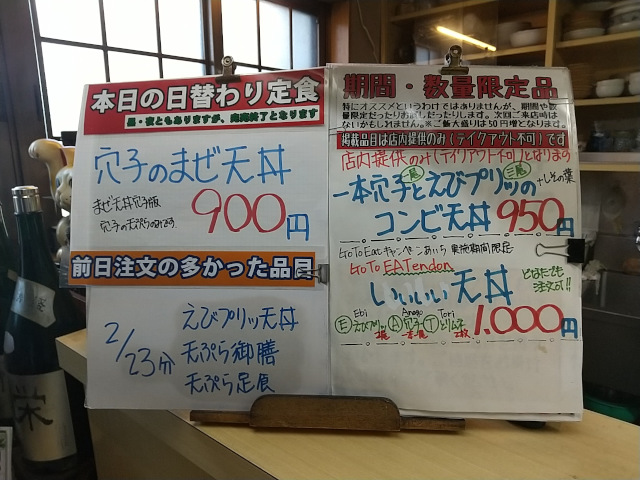 本日の日替わり定食
昼・夜ともありますが、完売終了となります
穴子のまぜ天丼
まぜ天丼穴子版
穴子の天ぷらのみです
900円
前日注文の多かった品目
2/23分
えびプリッ天丼
天ぷら御膳
天ぷら定食
期間・数量限定品
特にオススメというわけではありませんが、期間や数
量限定だったりお試しだったりします。次回ご来店時は
ないかもしれません。※ご飯大盛りは50円増となります。
掲載品目は店内提供のみ(テイクアウト不可)です
店内提供のみ(テイクアウト不可)となります
一本穴子とえびプリッの
一尾
三尾
+しその葉
コンビ天丼 950円
GoTo Eatキャンペーンあいち 実施期間限定
GoTo EATendon
いいいい天丼
どなたでも
注文可!!
Ebi
Anago
Tori
Eえびプリッ A穴子 Tとりムネ
2尾
一本
2枚
1,000円
栄